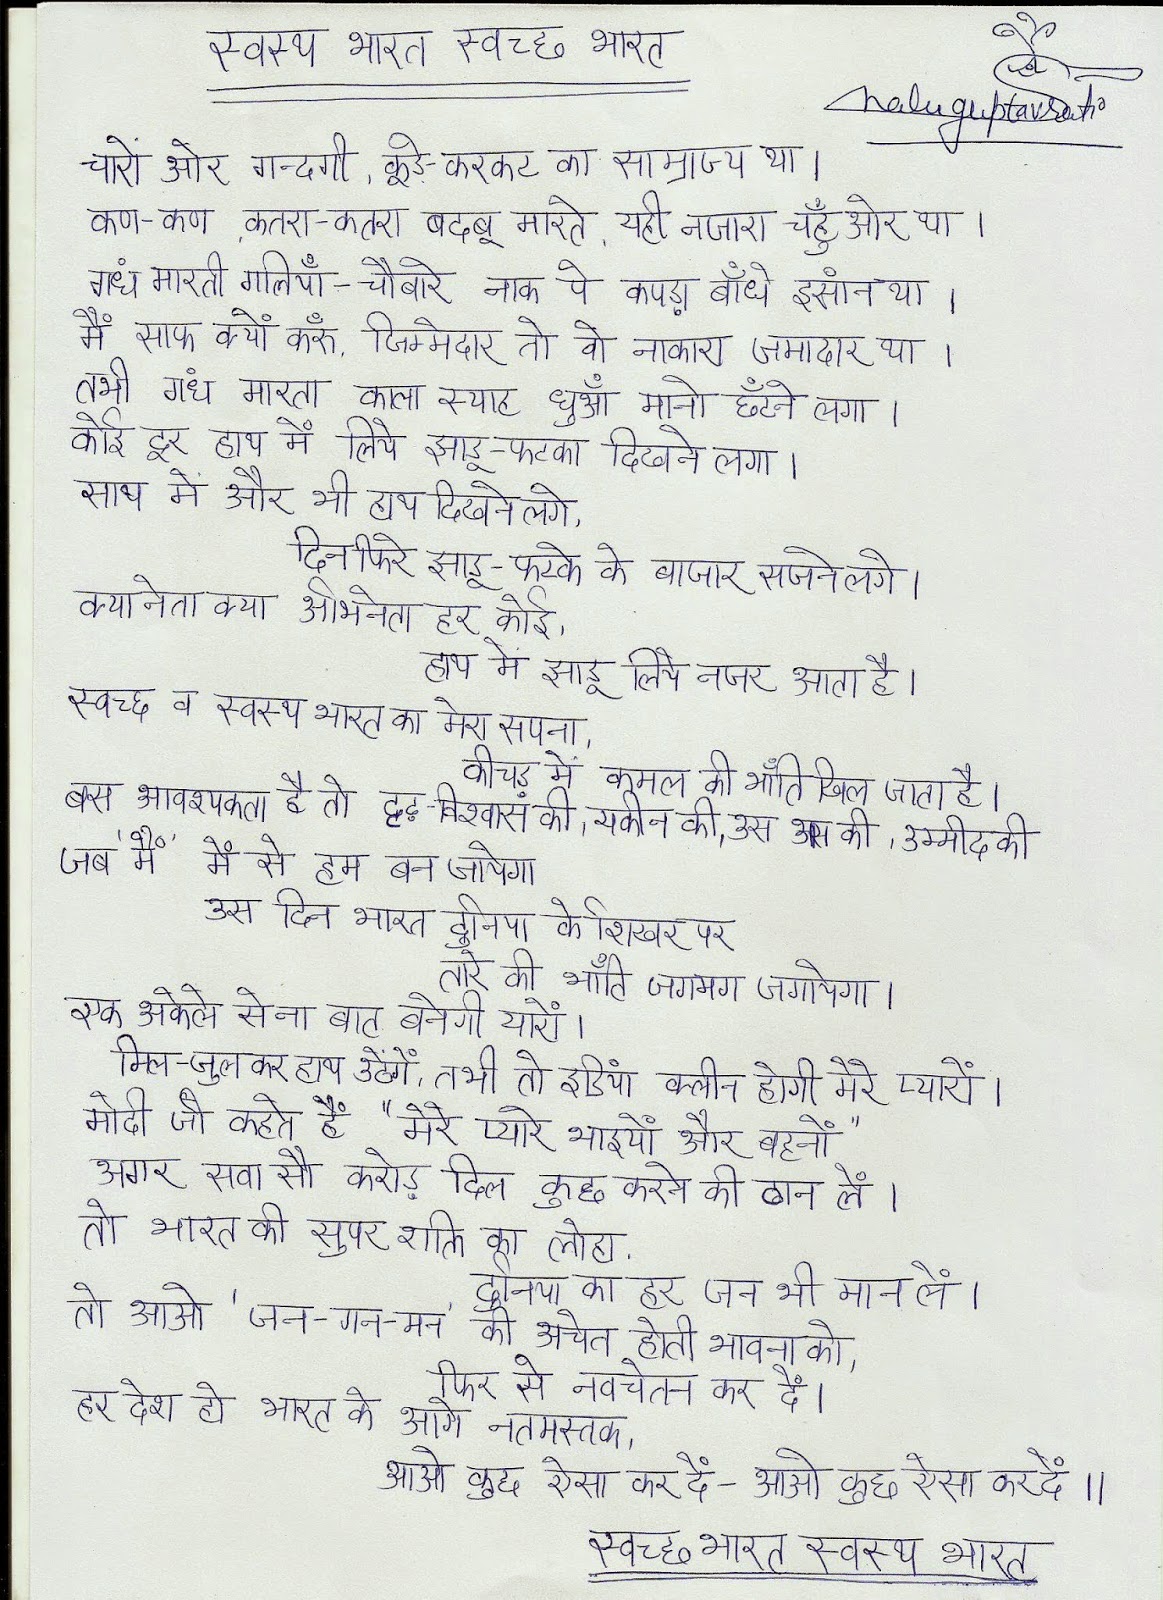 स्वस्थ भारत स्वच्छ भारत
चारों ओर गन्दगी, कूड़े-करकट का साम्राज्य था।
कण-कण, कतरा-कतरा बदबू मारते, यही नजारा चहुँ ओर था।
गधं मारती गलियाँ-चौबारे नाक पे कपड़ा बाँधे इसांन था।
मैं साफ क्यों करूँ, जिम्मेदार तो वो नाकारा जमादार था।
तभी गधं मारता काला स्याह धुआँ मानो छँटने लगा।
कोई दूर हाथ में लिये झाडू-फटका दिखने लगा।
साथ में और भी हाथ दिखने लगे,
दिन फिरे झाडू-फटके के बाजार सजने लगे।
क्या नेता क्या अभिनेता हर कोई,
हाथ में झाडू लिये नजर आता है।
स्वच्छ व स्वस्थ भारत का मेरा सपना,
कीचड़ में कमल की भाँति खिल जाता है।
बस आवश्यकता है तो दृढ़-विश्वास की, यकीन की, उस आस की, उम्मीद की
जब 'मैं' में से हम बन जायेगा
उस दिन भारत दुनिया के शिखर पर
तारे की भाँति जगमग जगायेगा।
एक अकेले से ना बात बनेगी यारों।
मिल-जुल कर हाथ उठेंगें, तभी तो इडियां क्लीन होगी मेरे प्यारों।
मोदी जी कहते हैं "मेरे प्यारे भाइयों और बहनों"
अगर सवा सौ करोड़ दिल कुछ करने की ठान लें।
तो भारत की सुपर शक्ति का लोहा,
दुनिया का हर जन भी मान लें।
तो आओ 'जन-गन-मन' की अचेत होती भावना को,
फिर से नवचेतन कर दें।
हर देश हो भारत के आगे नतमस्तक,
आओ कुछ ऐसा कर दें - आओ कुछ ऐसा कर दें॥
स्वच्छ भारत स्वस्थ भारत